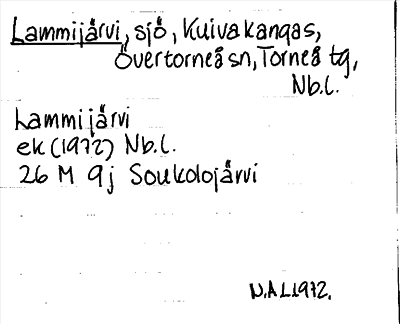 Lammijärvi, sjö, Kuivakangas,
Övertorneå sn, Torneå tg,
Nb.l.
Lammijärvi
ek (1972) Nb.l.
26 M 9j Soukolojärvi
N.A.L.1972.